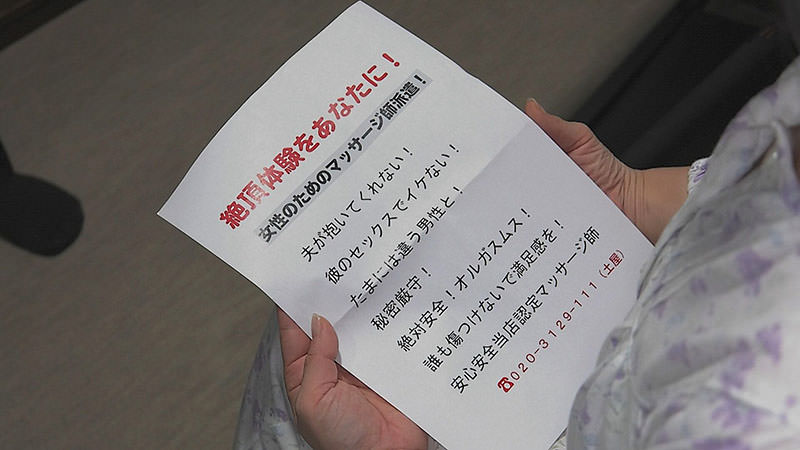 絶頂体験をあなたに！
女性のためのマッサージ師派遣！
夫が抱いてくれない！
彼のセックスでイケない！
たまには違う男性と！
秘密厳守！
絶対安全！オルガスムス！
誰も傷つけないで満足感を！
安心安全当店認定マッサージ師
☎020-3129-111（土屋）